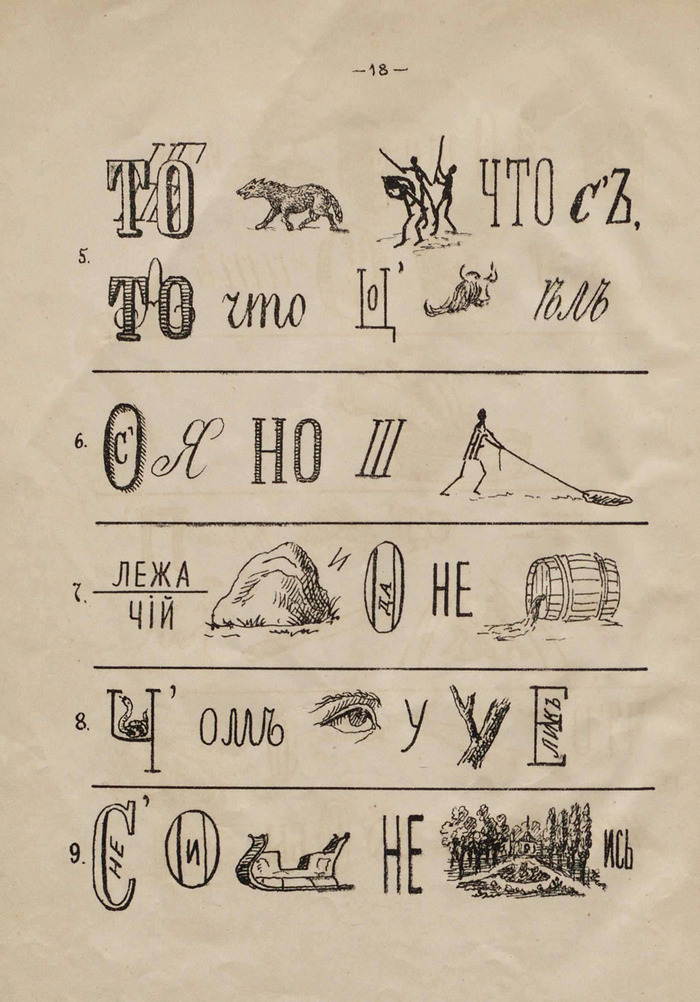 —18—
ТО ЧТО с'Ъ,
5.
ТО что Ц О ' ѣмъ
6. О С' Я НО Ш
ЛЕЖА
7. И О ДА НЕ
ЧІЙ
8. Ч ' омъ У У Е ЛИКЪ
9. С ' НЕ О И НЕ ИСЬ